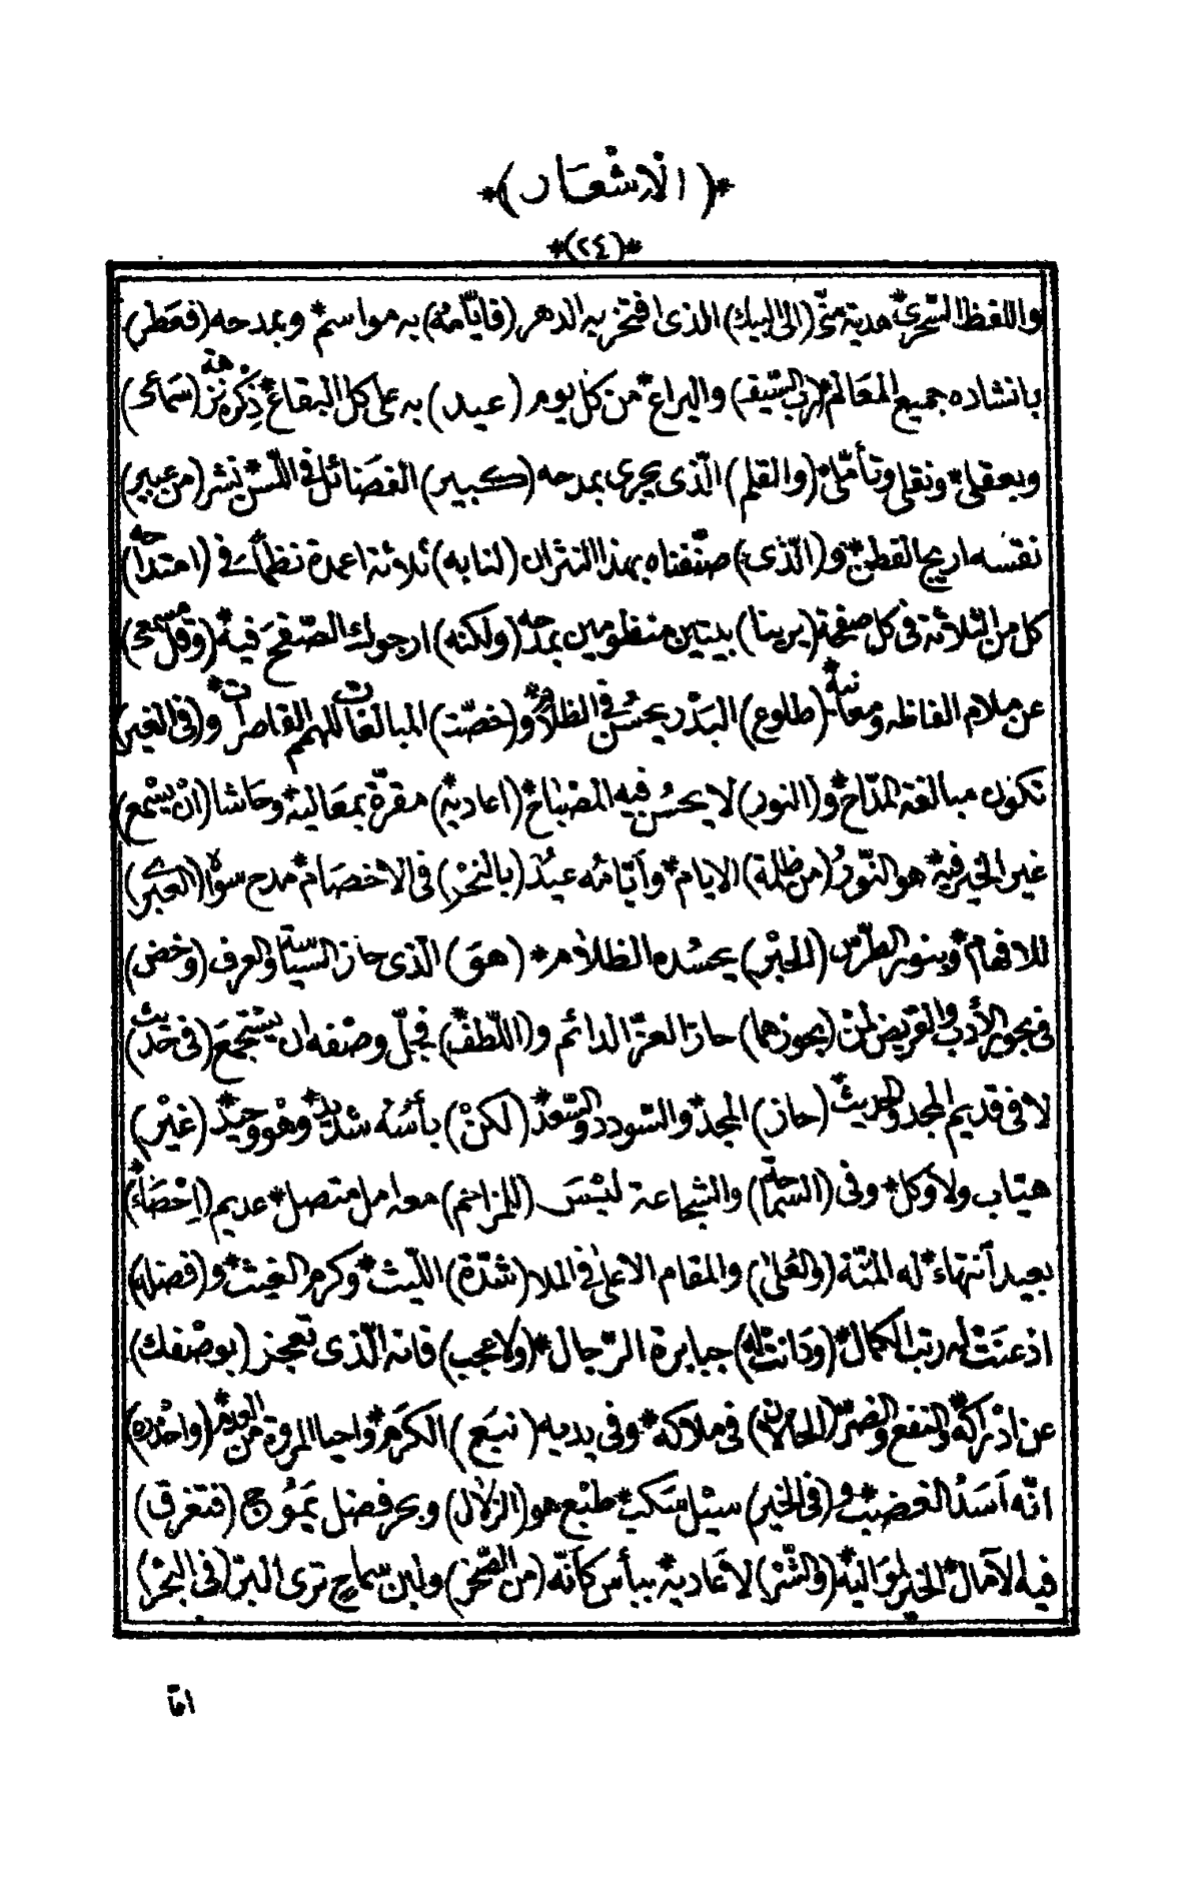 *( الاشعار )*
*(٢٤)*
واللفظ السّحرىّ* هدية منّى (الى البيك) الذى افتخر به الدهر (فايّامه) به مواسم* وبمدحه (فعطر)
بانشاده جميع المعالم* (رب السّيف) واليراع* من كل يوم (عيد) به على كل البقاع* ذكره نزهة (سمائى)
وبعقلى* ونقلى وتأمّلى* (والقلم) الّذى يجرى بمدحه (كبير) الفضائل فى اللّسن* نشر (من عبير)
نفسه اريج القطن* و (الّذى) صنّفناه بهذا النثران (لنا به) ثلاثة اعمدة نظمات فى (امتداحه)
كل من الثلاثة فى كل صفحة (يرينا) بيتين منظومين بمدحه (ولكنه) ارجوك الصّفح فيه* (وقل مسمعى)
عن ملام الفاظه ومعانيه* (طلوع) البدر يحسن فى الظلام* و (خصّت) المبالغات للهمم القاصرات* و (فى الغير)
تكون مبالغة المدّاح* و (النور) لا يحسن فيه المصباح* (اعاديه) مقرّة بمعاليه* وحاشا (ان يسمع)
غير الخير فيه* هو النّور (من ظلمة) الايام* وايّامه عيد (بالنحر) فى الاخصام* مدح سواه (العبر)
للافهام* وبنور الطرس (الحبر) يحسده الظلام* (هو) الّذى حاز السياسة والعرف (وخض)
فى بحور الأدب والقريض لمن (يحوزها) حاز العزّ الدائم و (اللّطف*) فجلّ وصفه ان يستجمع (فى حديث)
لا فى قديم المجد والحديث* (حاز) المجد* والسّودد والسّعد* (لكن) بأسه شديد* وهو وحيد* (غير)
هيّاب ولا وكل* وفى (السّماحة) والشجاعة ليس (للمزاحم) معه امل متصل* عديم (احصاء*)
بعيد انتهاء* له المنّة (والعلى) والمقام الاعلى فى الملا (شدّة) الليث* وكرم الغيث* و (فضله)
اذعنت له رتب الكمال* (ودانت له) جبابرة الرّجال* (ولا عجب) فانه الّذى تعجز (بوصفك)
عن ادراكه* والنفع والضرّ (الحالان) فى ملاكه* وفى يديه (نبع) الكرم* واحيا المروة من العدم* (واحذره)
انّه اسد الغضب* و (فى الخير) سيل سكب* طبع هو (الزلال) وبحر فضل يموج (فتغرق)
فيه الآمال* الخير لمواليه* (والشّر) لاعاديه* ببأس كأنّه (من الصّخر) ولين سماح ترى البرّ (فى البحر)
اما